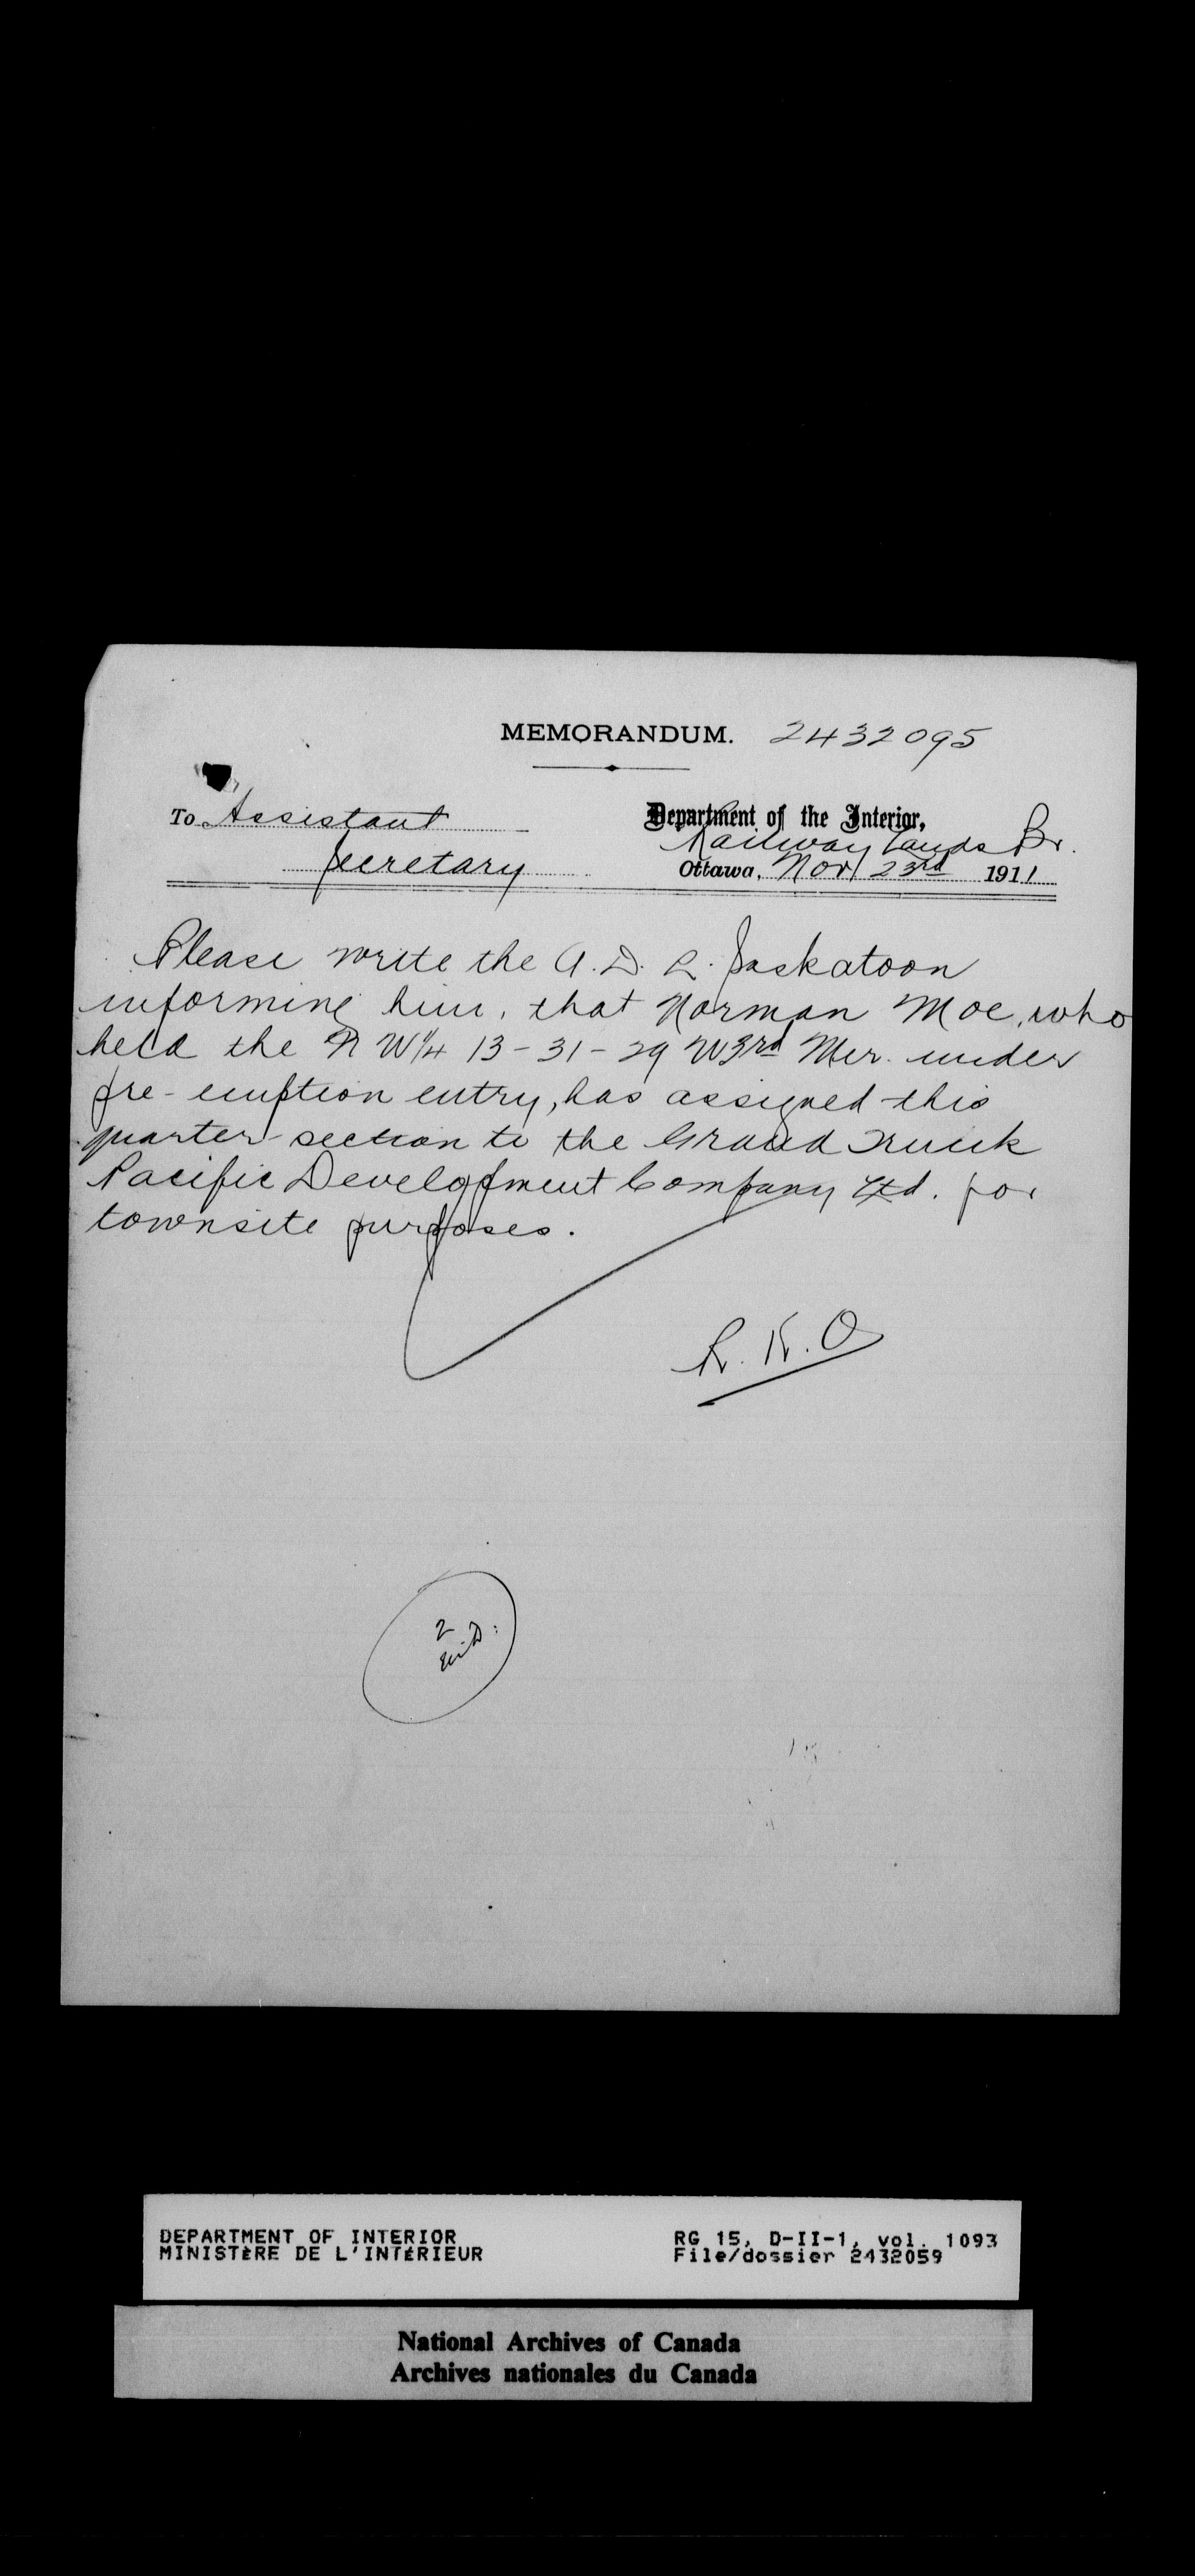 MEMORANDUM. 2432095
To Assistant
Secretary
Department of the Interior,
Railway Lands Br.
Ottawa, Nov 23rd 1911
Please write the A. D. L. Saskatoon
informing him, that Norman Moe, who
held the N W 1/4 13-31-29 W3rd Mer. under
pre-emption entry, has assigned this
quarter-section to the Grand Trunk
Pacific Development Company Ltd. for
townsite purposes.
R. K. O
2
DEPARTMENT OF INTERIOR
MINISTÈRE DE L'INTÉRIEUR
RG 15, D-II-1, vol. 1093
File/dossier 2432059
National Archives of Canada
Archives nationales du Canada